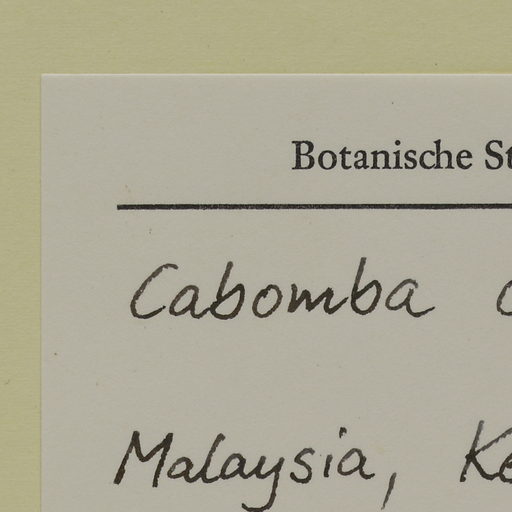 Botanische
Cabomba
Malaysia,